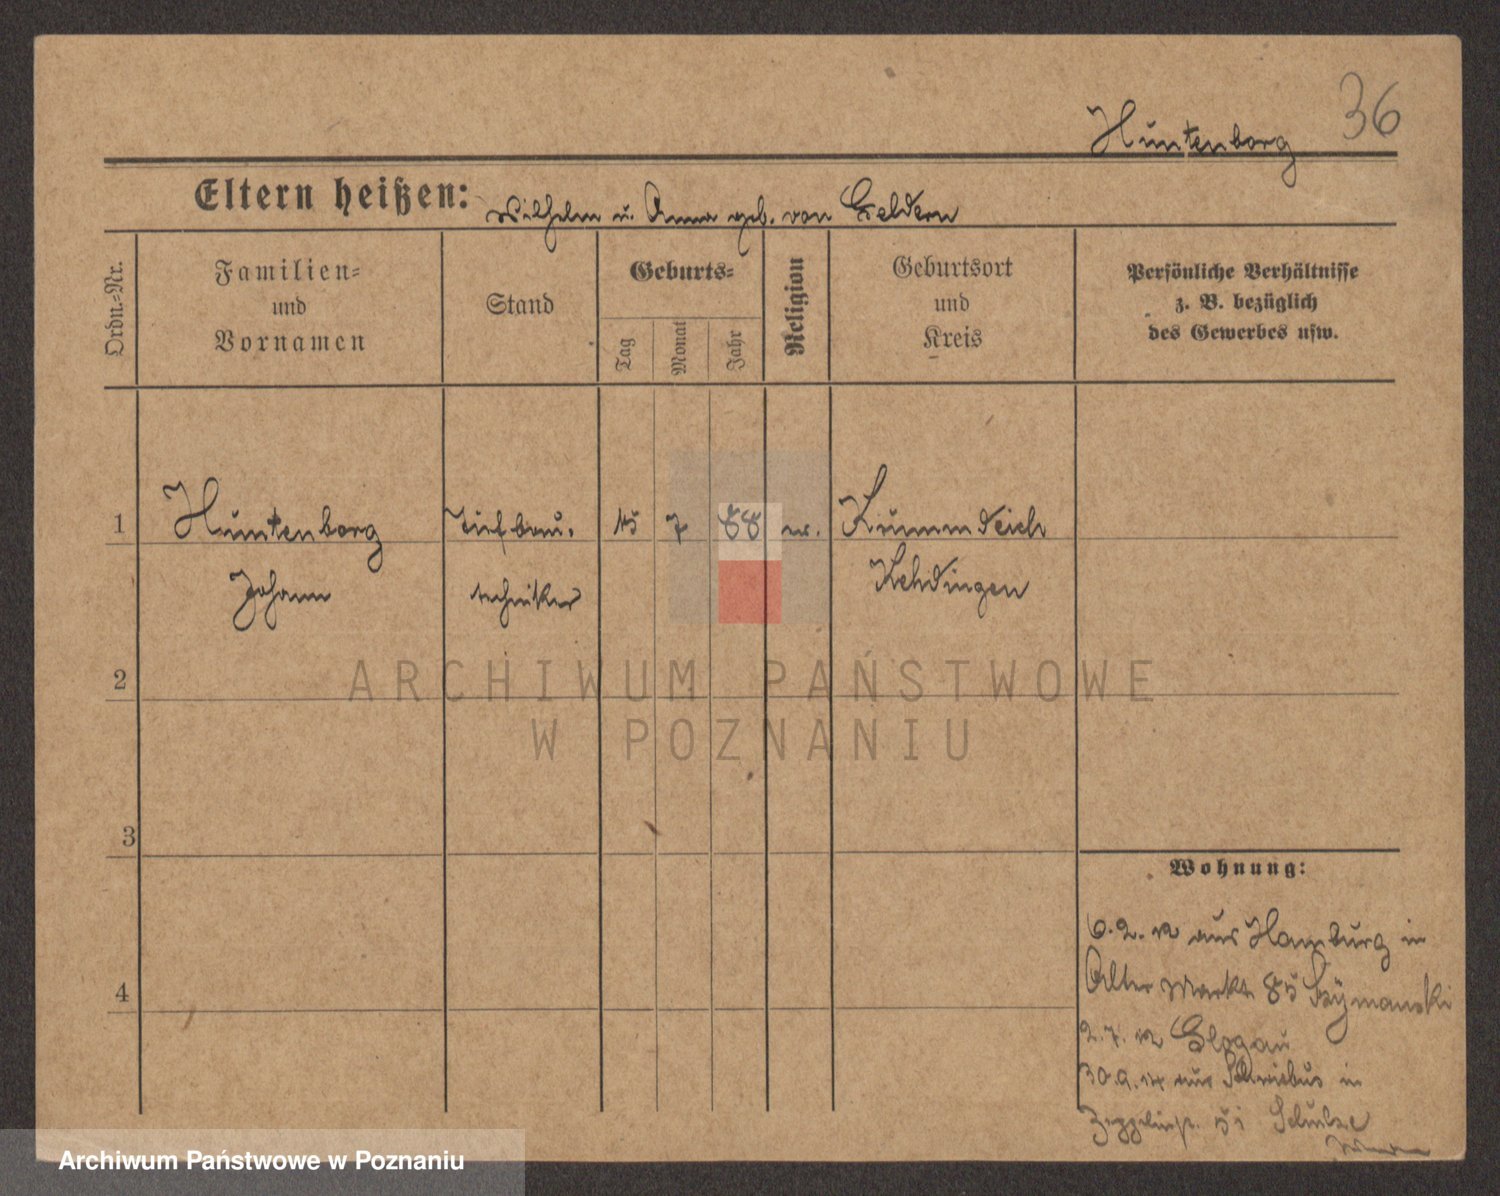 36
Huntenborg
Eltern heißen: Wilhelm u. Anna geb. von Geldern
Ordn.-Nr.
Familien-
und
Vornamen
Stand
Geburts-
Tag
Monat
Jahr
Religion
Geburtsort
und
Kreis
Persönliche Verhältnisse
z. B. bezüglich
des Gewerbes usw.
1 Huntenborg Tiefbau- 15 7 88 ev. Krummdeich
Johann techniker Kehdingen
2
3
4
Wohnung:
6.2.12 aus Hamburg in
Alter Markt 85 Szÿmanski
2.7.12 Glogau
30.9.14 aus Schwiebus in
Zeppelinstr. 51 Schulze
ARCHIWUM PAŃSTWOWE
W POZNANIU
Archiwum Państwowe w Poznaniu